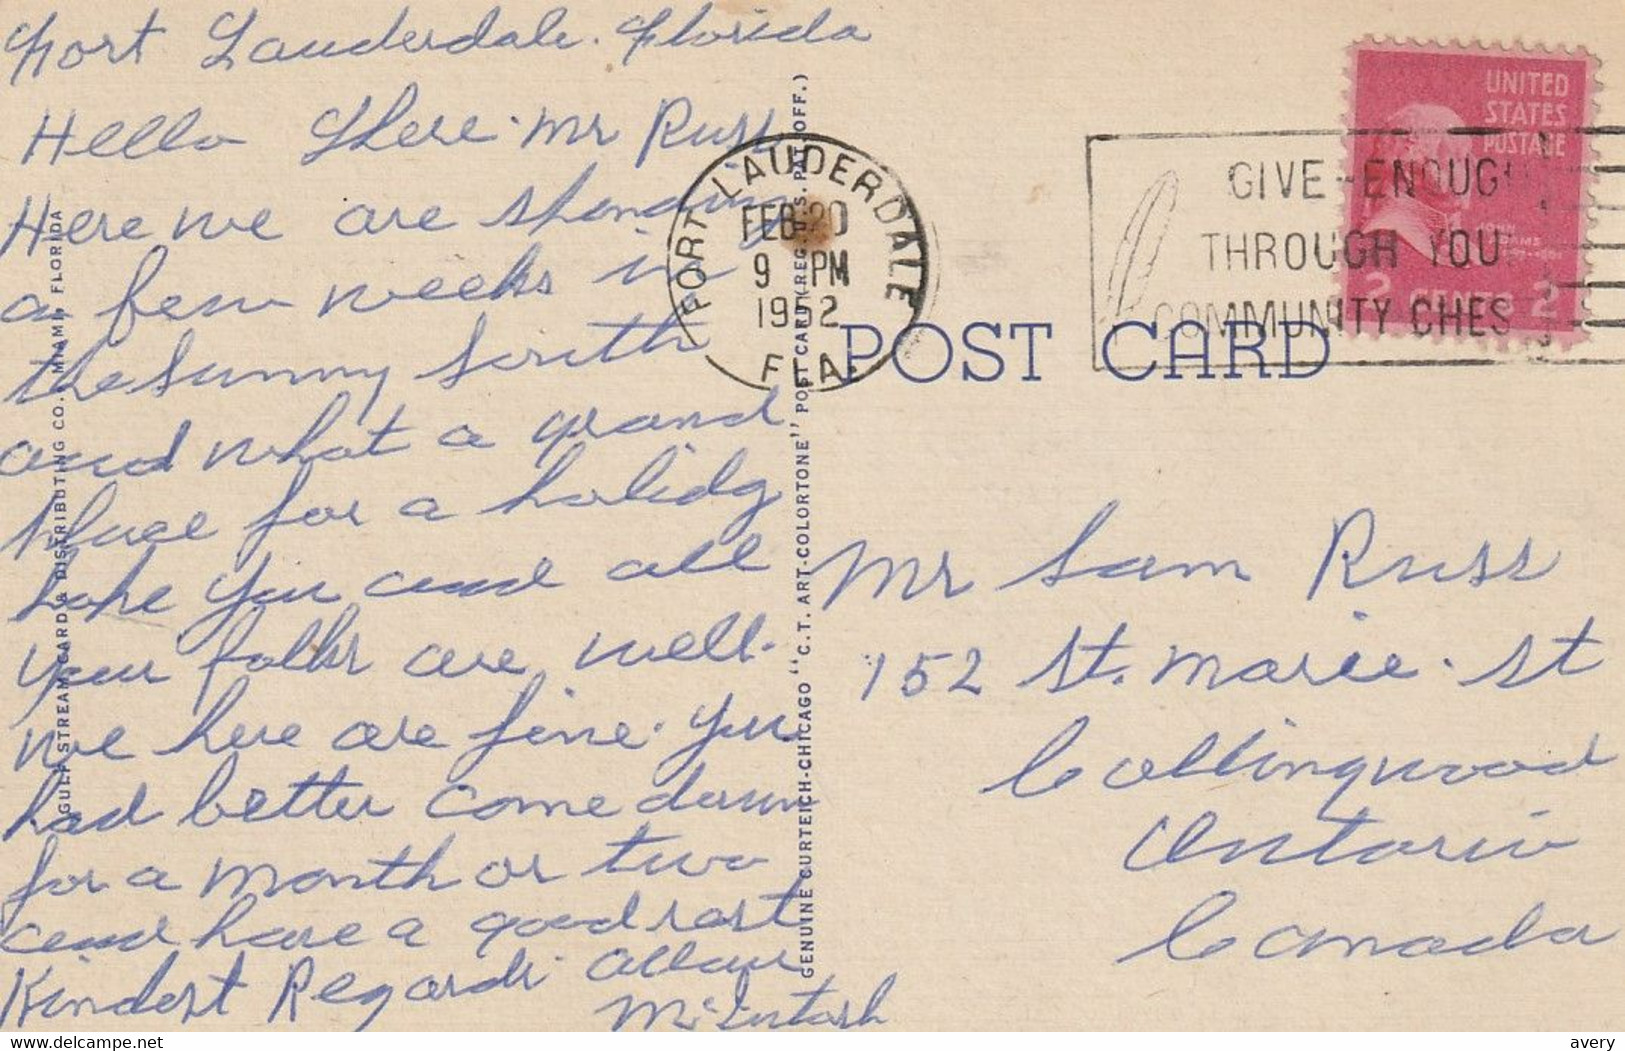 Fort Lauderdale. Florida
Hello There. Mr Russ
Here we are spending
a few weeks in
the sunny south
and what a grand
place for a holidy
hope you and all
your folks are well.
we here are fine. you
had better come down
for a month or two
and have a good rest
Kindest Regards. Allan
McIntosh
GULF STREAM CARD & DISTRIBUTING CO. MIAMI FLORIDA
GENUINE CURTEICH-CHICAGO "C.T. ART-COLORTONE" POST CARD (REG. U.S. PAT. OFF.)
FORT LAUDERDALE
FEB 20
9 PM
1952
FLA.
POST CARD
GIVE ENOUG
THROUGH YOU
COMMUNITY CHES
UNITED
STATES
POSTAGE
JOHN
ADAMS
2 CENTS 2
Mr Sam Russ
152 St. Marie. St
Collingwood
Ontario
Canada
Visit our store @ delcampe.net
avery